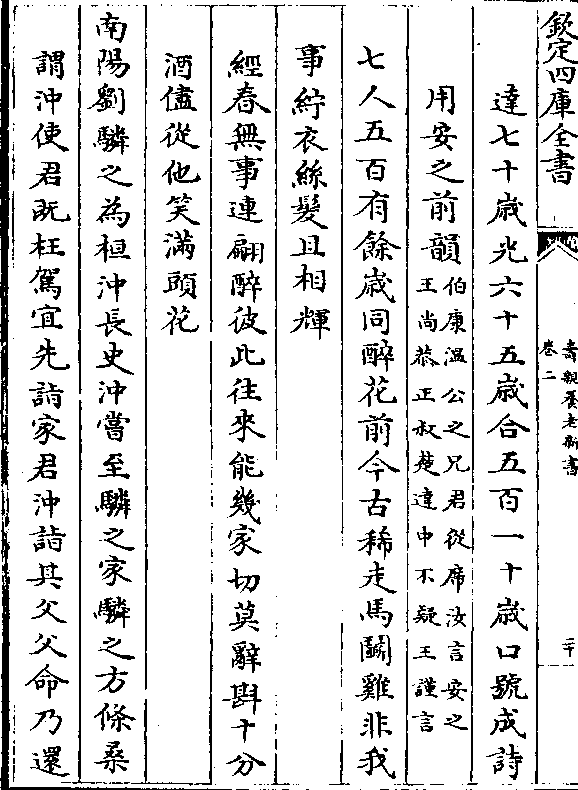 欽定四庫全書
壽親養老新書
卷二
二十
達七十歲光六十五歲合五百一十歲口號成詩
用安之前韻伯康溫公之兄君從席汝言安之
王尚恭正叔楚達中不疑王謹言
七人五百有餘歲同醉花前今古稀走馬鬭雞非我
事紵衣絲髮且相輝
經春無事連翩醉彼此往來能幾家切莫辭斟十分
酒儘從他笑滿頭花
南陽劉驎之為桓沖長史沖嘗至驎之家驎之方條桑
謂沖使君既枉駕宜先詣家君沖詣其父父命乃還